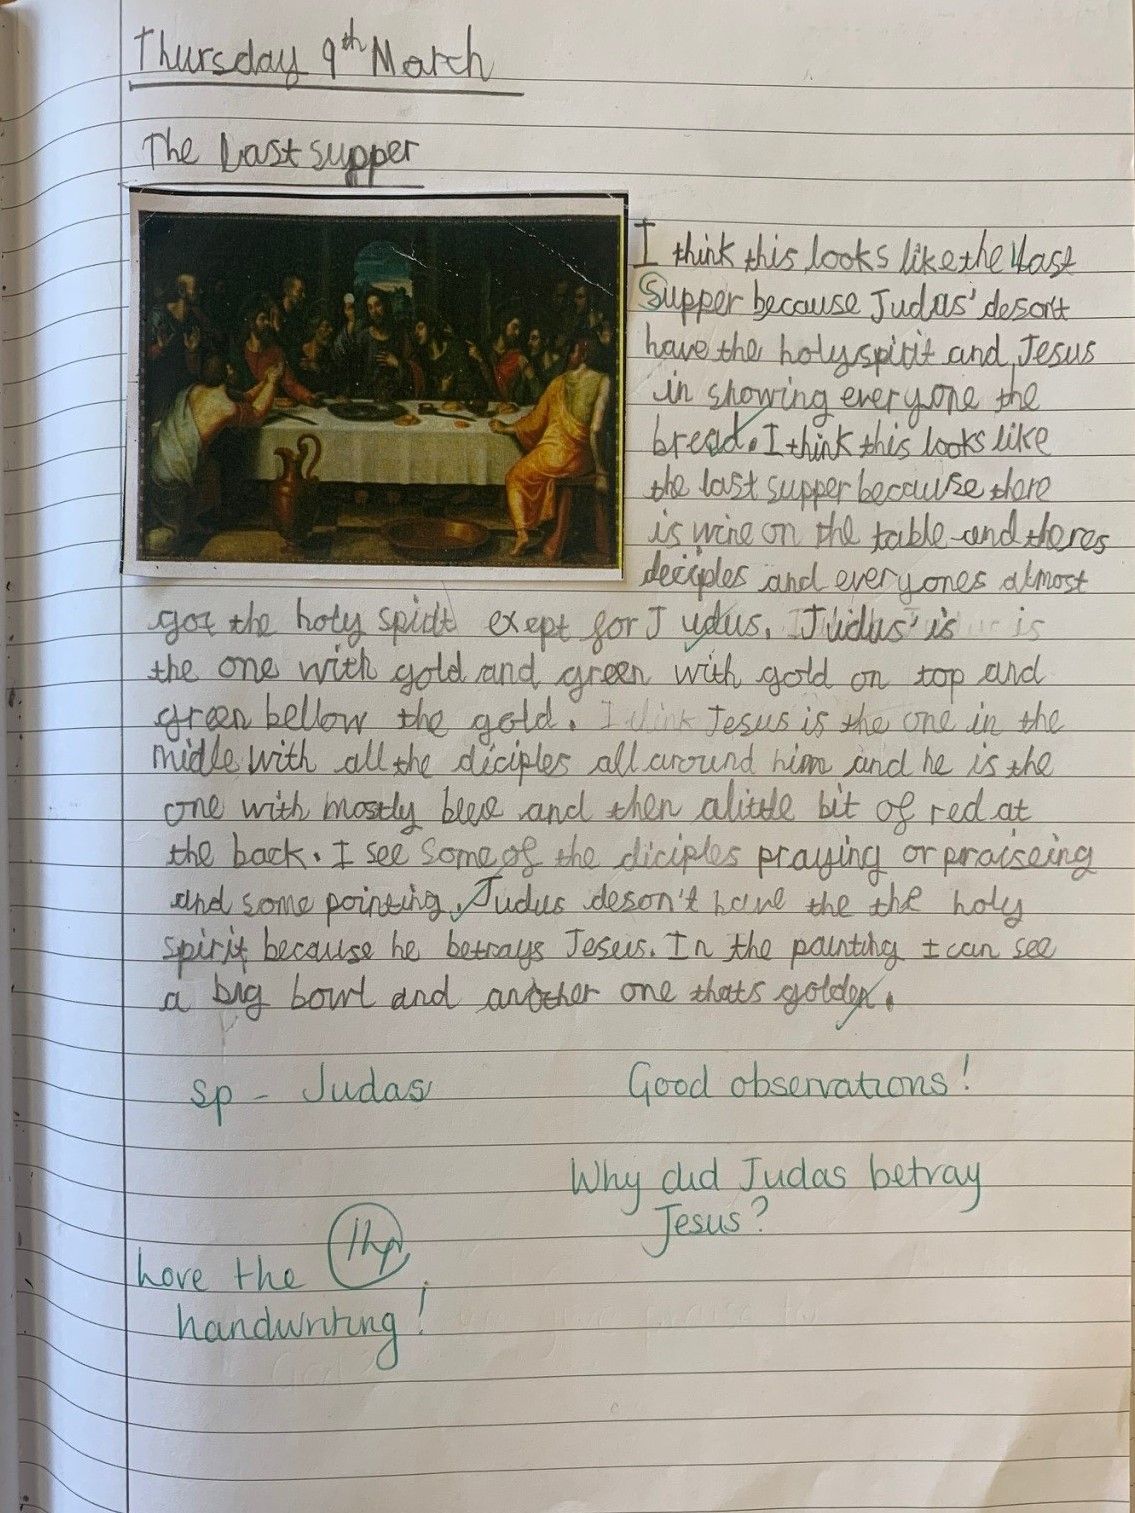 Thursday 9th March
The Last supper
I think this looks like the Last
Supper because Judas' deson't
have the holy spirit and Jesus
in showing everyone the
bread. I think this looks like
the last supper because there
is wine on the table and theres
deciples and everyones almost
got the holy spirit exept for Judus. Judus' is is
the one with gold and green with gold on top and
green bellow the gold. I think Jesus is the one in the
midle with all the diciples all around him and he is the
one with mostly blue and then alittle bit of red at
the back. I see some of the diciples praying or praiseing
and some pointing. Judus deson't have the the holy
spirit because he betrays Jesus. In the painting I can see
a big bowl and another one thats golden.
sp - Judas
Good observations!
Why did Judas betray
Jesus?
1hp
Love the
handwriting!